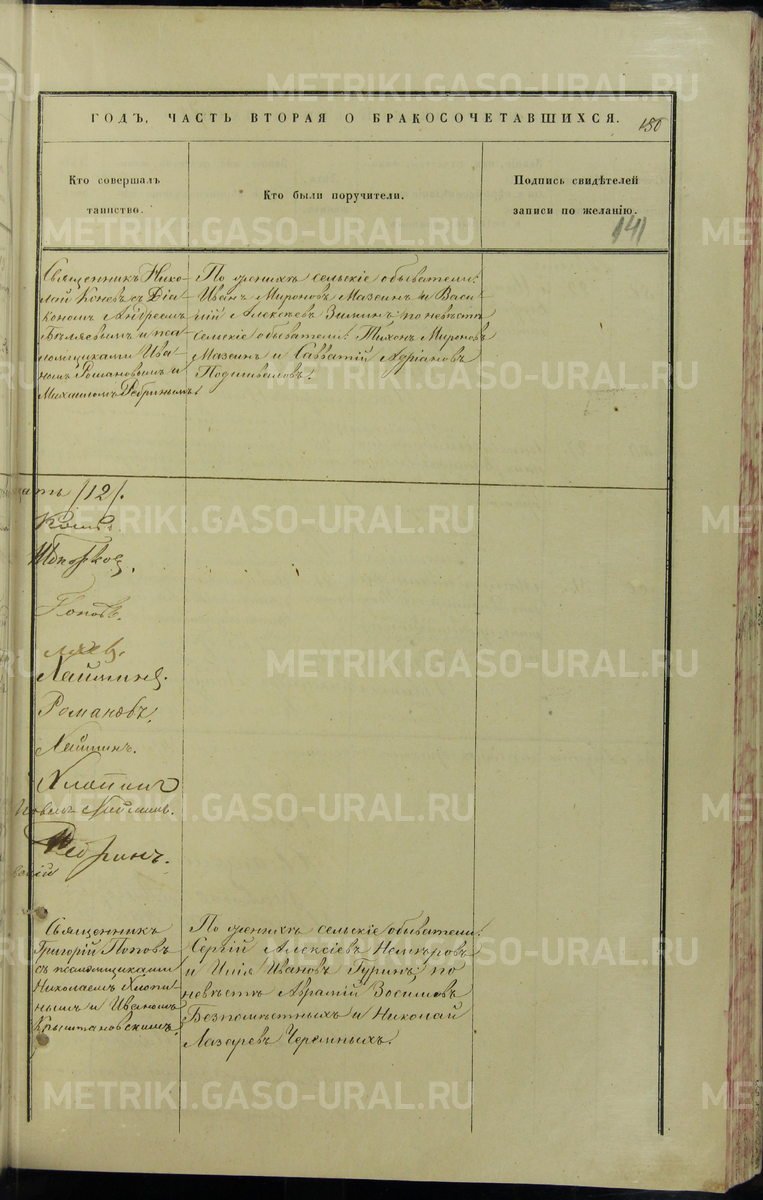 ГОДЪ, ЧАСТЬ ВТОРАЯ О БРАКОСОЧЕТАВШИХСЯ.
150
Кто совершалъ
таинство.
Кто были поручители.
Подпись свидѣтелей
записи по желанію.
141
Священникъ Нико-
лай Коневъ съ Діа-
кономъ Андреемъ
Бѣляевымъ и пса-
ломщиками Ива-
номъ Романовымъ и
Михаиломъ Ребринымъ.
По женихѣ сельскіе обыватели:
Иванъ Мироновъ Мазеинъ и Васи-
лій Алексѣевъ Зиминъ; по невѣстѣ
сельскіе обыватели: Тихонъ Мироновъ
Мазеинъ и Савватій Адріановъ
Подшиваловъ.
/12/.
Коневъ.
Поповъ.
Романовъ.
Священникъ
Григорій Поповъ
съ псаломщиками
Николаемъ Хлопи-
нымъ и Иваномъ
Крыштановскимъ.
По женихѣ сельскіе обыватели:
Сергій Алексіевъ Немѣровъ
и Илія Ивановъ Гуринъ; по
невѣстѣ Аврамій Зосимовъ
Безпомѣстныхъ и Николай
Лазаревъ Черемныхъ.
METRIKI.GASO-URAL.RU